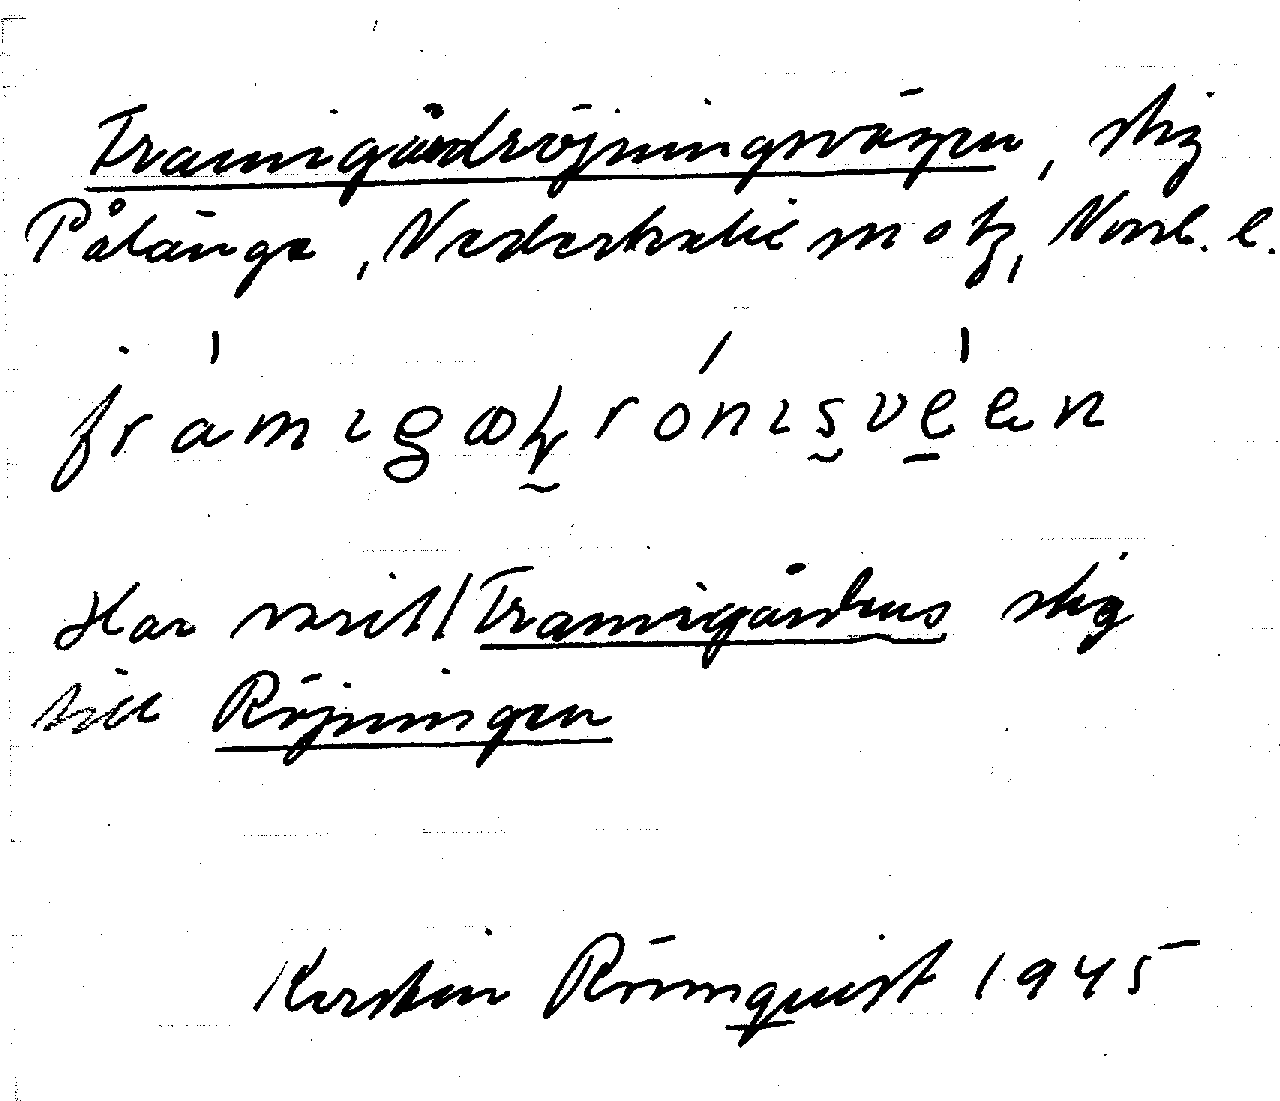 Framigårdröjningsvägen, stig
Pålänge, Nederkalix sn o tg, Norrb. l.
framıgaƚrónıs̰vẹen
Har varit Framigårdens stig
till Röjningen
Kerstin Rönnquist 1945